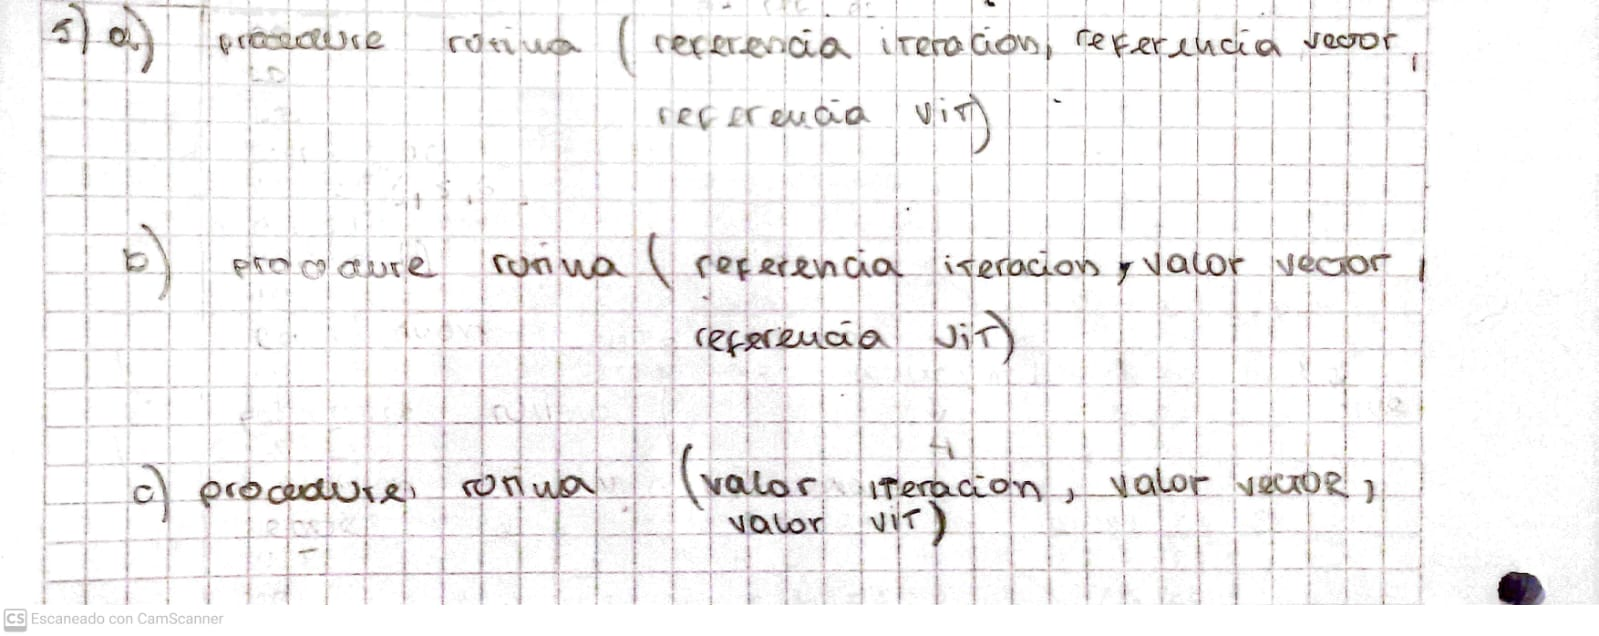 5) a) procedure rutina ( referencia iteracion, referencia vector,
referencia vit)
b) procedure rutina ( referencia iteracion, valor vector,
referencia vit)
c) procedure rutina ( valor iteracion, valor vector,
valor vit)
CS Escaneado con CamScanner